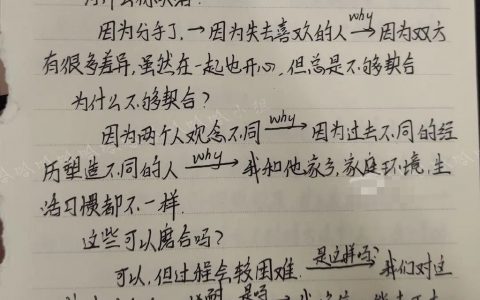 因为分手了,→因为失去喜欢的人 why→ 因为双方
有很多差异,虽然在一起也开心,但总是不够契合
为什么不够契合?
因为两个人观念不同 why→ 因为过去不同的经
历塑造不同的人 why→ 我和他家乡,家庭环境,生
活习惯都不一样.
这些可以磨合吗?
可以,但过程会较困难. 是这样吗?→ 我们对这